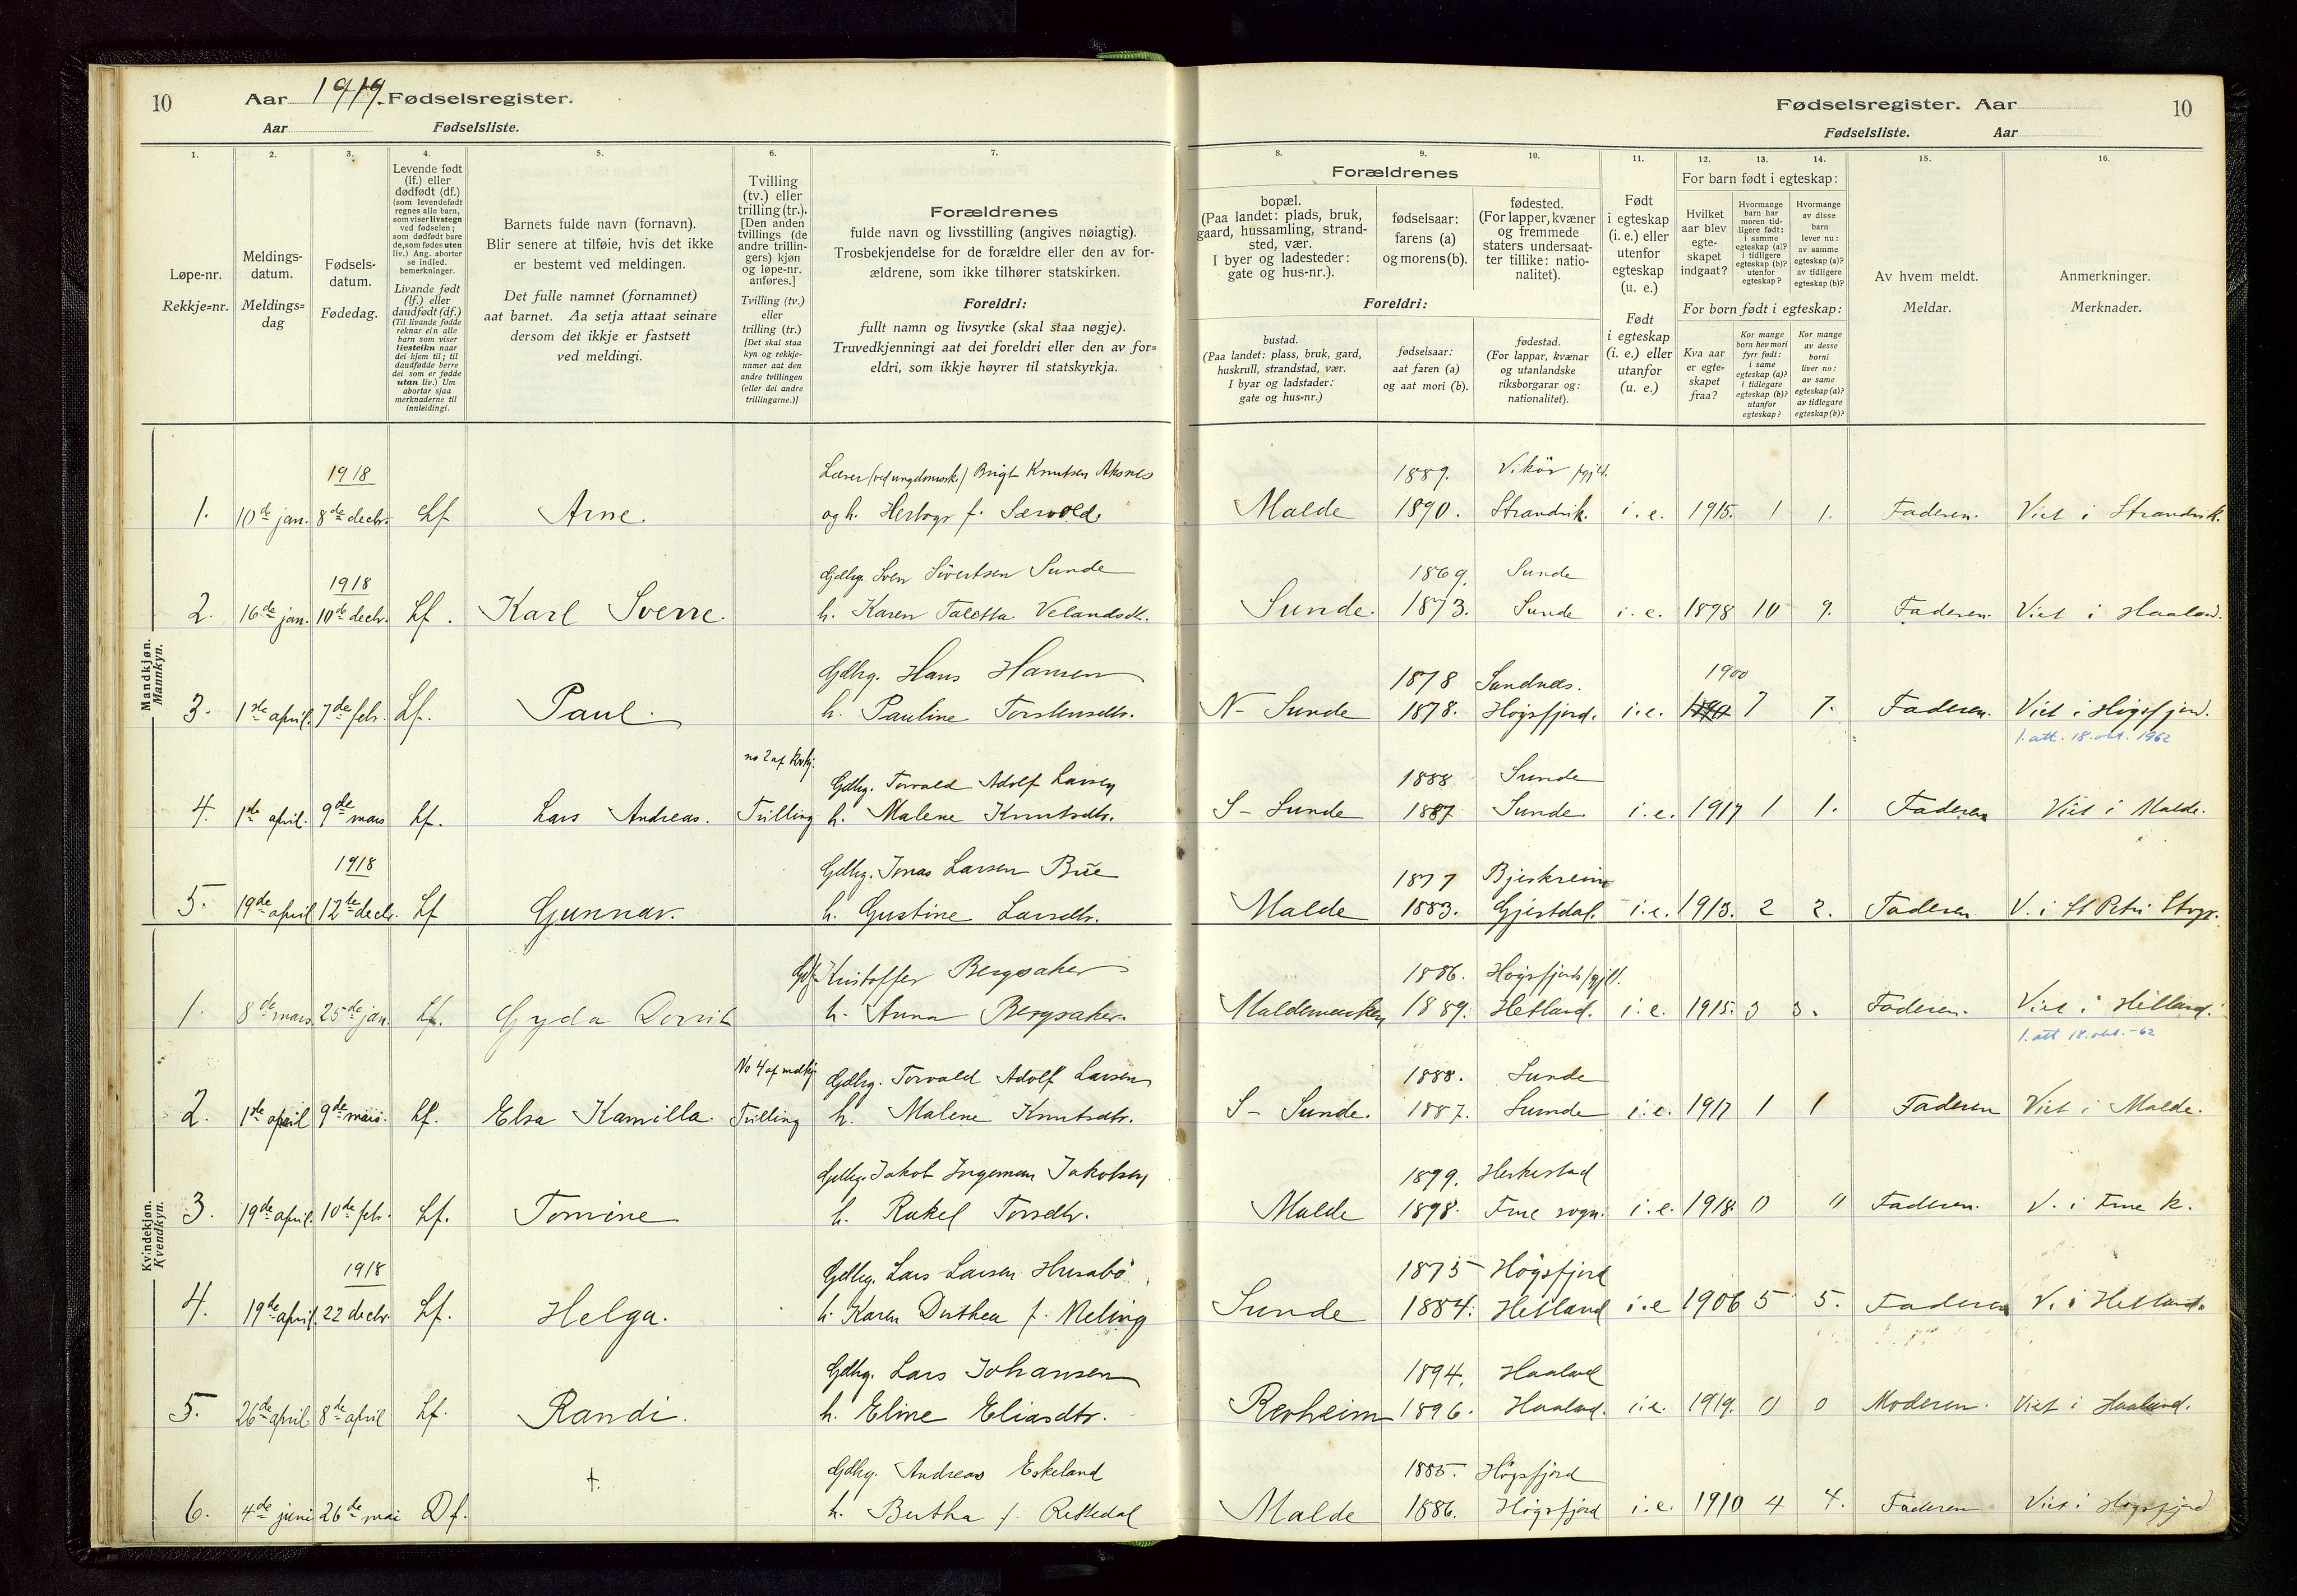 10 Aar 1919. Fødselsregister.
Aar Fødselsliste.
Fødselsregister. Aar 10
Fødselsliste. Aar
1. 2. 3. 4. 5. 6. 7. 8. 9. 10. 11. 12. 13. 14. 15. 16.
Løpe-nr.
Rekkje=nr.
Meldings-
datum.
Meldings=
dag
Fødsels-
datum.
Fødedag.
Levende født
(lf.) eller
dødfødt (df.)
(som levendefødt
regnes alle barn,
som viser livstegn
ved fødselen;
som dødfødt bare
de, som fødes uten
liv.) Ang. aborter
se indled.
bemerkninger.
Livande født
(lf.) eller
daudfødt (df.)
(Til livande fødde
reknar ein alle
barn som viser
livsteikn naar
dei kjem til; til
daudfødde berre
dei som er fødde
utan liv.) Um
abortar sjaa
merknaderne til
innleidingi.
Barnets fulde navn (fornavn).
Blir senere at tilføie, hvis det ikke
er bestemt ved meldingen.
Det fulle namnet (fornamnet)
aat barnet. Aa setja attaat seinare
dersom det ikkje er fastsett
ved meldingi.
Tvilling
(tv.) eller
trilling (tr.).
[Den anden
tvillings (de
andre trillin-
gers) kjøn
og løpe-nr.
anføres.]
Tvilling (tv.)
eller
trilling (tr.)
[Det skal staa
kyn og rekkje-
numer aat den
andre tvillingen
(eller dei andre
trillingarne.)]
Forældrenes
fulde navn og livsstilling (angives nøiagtig).
Trosbekjendelse for de forældre eller den av for-
ældrene, som ikke tilhører statskirken.
Foreldri:
fullt namn og livsyrke (skal staa nøgje).
Truvedkjenningi aat dei foreldri eller den av for=
eldri, som ikkje høyrer til statskyrkja.
Forældrenes
bopæl.
(Paa landet: plads, bruk,
gaard, hussamling, strand-
sted, vær.
I byer og ladesteder:
gate og hus-nr.).
fødselsaar:
farens (a)
og morens (b).
fødested.
(For lapper, kvæner
og fremmede
staters undersaat-
ter tillike: natio-
nalitet).
Foreldri:
bustad.
(Paa landet: plass, bruk, gard,
huskrull, strandstad, vær.
I byar og ladstader:
gate og hus=nr.)
fødselsaar:
aat faren (a)
og aat mori (b).
fødestad.
(For lappar, kvænar
og utanlandske
riksborgarar og:
nationalitet).
Født
i egteskap
(i. e.) eller
utenfor
egteskap
(u. e.)
Født
i egteskap
(i. e.) eller
utanfor
(u. e.)
For barn født i egteskap:
Hvilket
aar blev
egte-
skapet
indgaat?
Hvormange
barn har
moren tid-
ligere født:
i samme
egteskap (a)?
i tidligere
egteskap (b)?
utenfor
egteskap?
Hvormange
av disse
barn
lever nu:
av samme
egteskap (a)?
av tidligere
egteskap (b)?
For born født i egteskap:
Kva aar
er egte=
skapet
fraa?
Kor mange
born hev mori
fyrr født:
i same
egteskap (a)?
i tidlegare
egteskap (b)?
utanfor
egteskap?
Kor mange
av desse
borni
liver no:
av same
egteskap (a)?
av tidlegare
egteskap (b)?
Av hvem meldt.
Meldar.
Anmerkninger.
Merknader.
Mandkjøn.
Mannkyn.
1918 Lærer Brigt Knutsen Aksnes 1889. Vikör
1. 10de jan. 8de decbr. Lf Arne. og h. Herborg f. Malde 1890. Strandvik. i. e. 1915. 1 1. Faderen. Viet i Strandvik.
1918 Gdbrg. Sven Sivertsen Sunde 1869. Sunde
2. 16de jan. 10de decbr. Lf. Karl Sverre. h. Karen Taletta Velandsdtr. Sunde. 1873. Sunde i. e. 1898 10 9. Faderen. Viet i Haaland.
Gdbrg. Hans Hansen 1878 Sandnes. 1900
3. 1ste april. 7de febr. Lf. Paul. h. Pauline Torstensdtr. N- Sunde 1878. Høgsfjord. i. e. 7 7. Faderen. Viet i Høgsfjord.
1. att. 18. okt. 1962
no 2 af kvkj. Gdbrg. Torvald Adolf Larsen 1888 Sunde
4. 1ste april. 9de mars Lf. Lars Andreas. Tvilling h. Malene Knutsdtr. S- Sunde 1887 Sunde i. e. 1917 1 1. Faderen Viet i Malde.
1918 Gdbrg. Jonas Larsen Bue 1877 Bjerkreim
5. 19de april 12te decbr. Lf Gunnar. h. Gustine Larsdtr. Malde 1883. Gjestdal. i. e. 1913. 2 2. Faderen V. i St Petri Stvgr.
Kvindekjøn.
Kvendkyn.
Kristoffer Bergsaker 1886. Høgsfjord
1. 8de mars. 25de jan. Lf. Gyda Dorrit h. Anna Bergsaker. Maldemarken 1889. Hetland. i. e. 1915. 3 3. Faderen. Viet i Hetland.
1. att 18. okt. -62
No 4 af mdkj. Gdbrg. Torvald Adolf Larsen 1888. Sunde
2. 1ste april 9de mars. Lf. Elsa Kamilla. Tvilling h. Malene Knutsdtr. S- Sunde. 1887. Sunde i. e. 1917 1 1 Faderen Viet i Malde.
Gdbrg. Jakob Ingeman Jakobsen 1899. Heskestad
3. 19de april. 10de febr. Lf. Tomine h. Rakel Torsdtr. Malde 1898. Frue sogn. i. e. 1918 0 Faderen. V. i Frue K.
1918 Gdbrg. Lars Larsen Husabö 1875 Högsfjord
4. 19de april. 22 decbr. Lf. Helga. h. Karen Dorthea f. Meling Sunde 1884. Hetland i. e 1906 5 5. Faderen V. i Hetland.
Gdbrg. Lars Johansen 1894. Haaland
5. 26de april. 8de april Lf. Randi. h. Eline Eliasdtr. Revheim 1896. Haaland. i. e. 1919. 0 0 Moderen. Viet i Haaland.
Gdbrg. Andreas Eskeland 1885. Högsfjord
6. 4de juni 26de mai Df. †. h. Bertha f. Rettedal Malde 1886. Högsfjord i. e. 1910 4 4. Faderen Viet i Høgsfjord